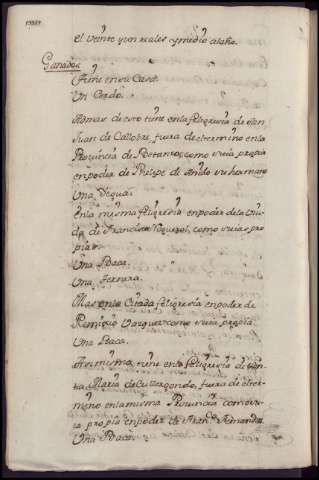 el veinte y un reales y medio al año.
Ganados
tiene en su Casa
Un Cerdo
Ademas de esto tiene en la feligresia de San
Juan de Callobre, fuera de el termino en la
Provincia de Betanzos, como suia propia
en poder de Phelipe de Amido su hermano
Una Yegua
En la misma feligresia en poder de la Viu-
da de Francisco, como suias pro
pias
Una Baca
Una Ternera
Mas en la Citada feligresia en poder de
Remigio Vazquez como suia propia
Una Baca
Asimismo tiene en la feligresia de San-
ta Maria de Cutiagondo, fuera de el ter-
mino en la misma Provincia como su-
ia propia en poder de Fran.co Amandi
Una Baca